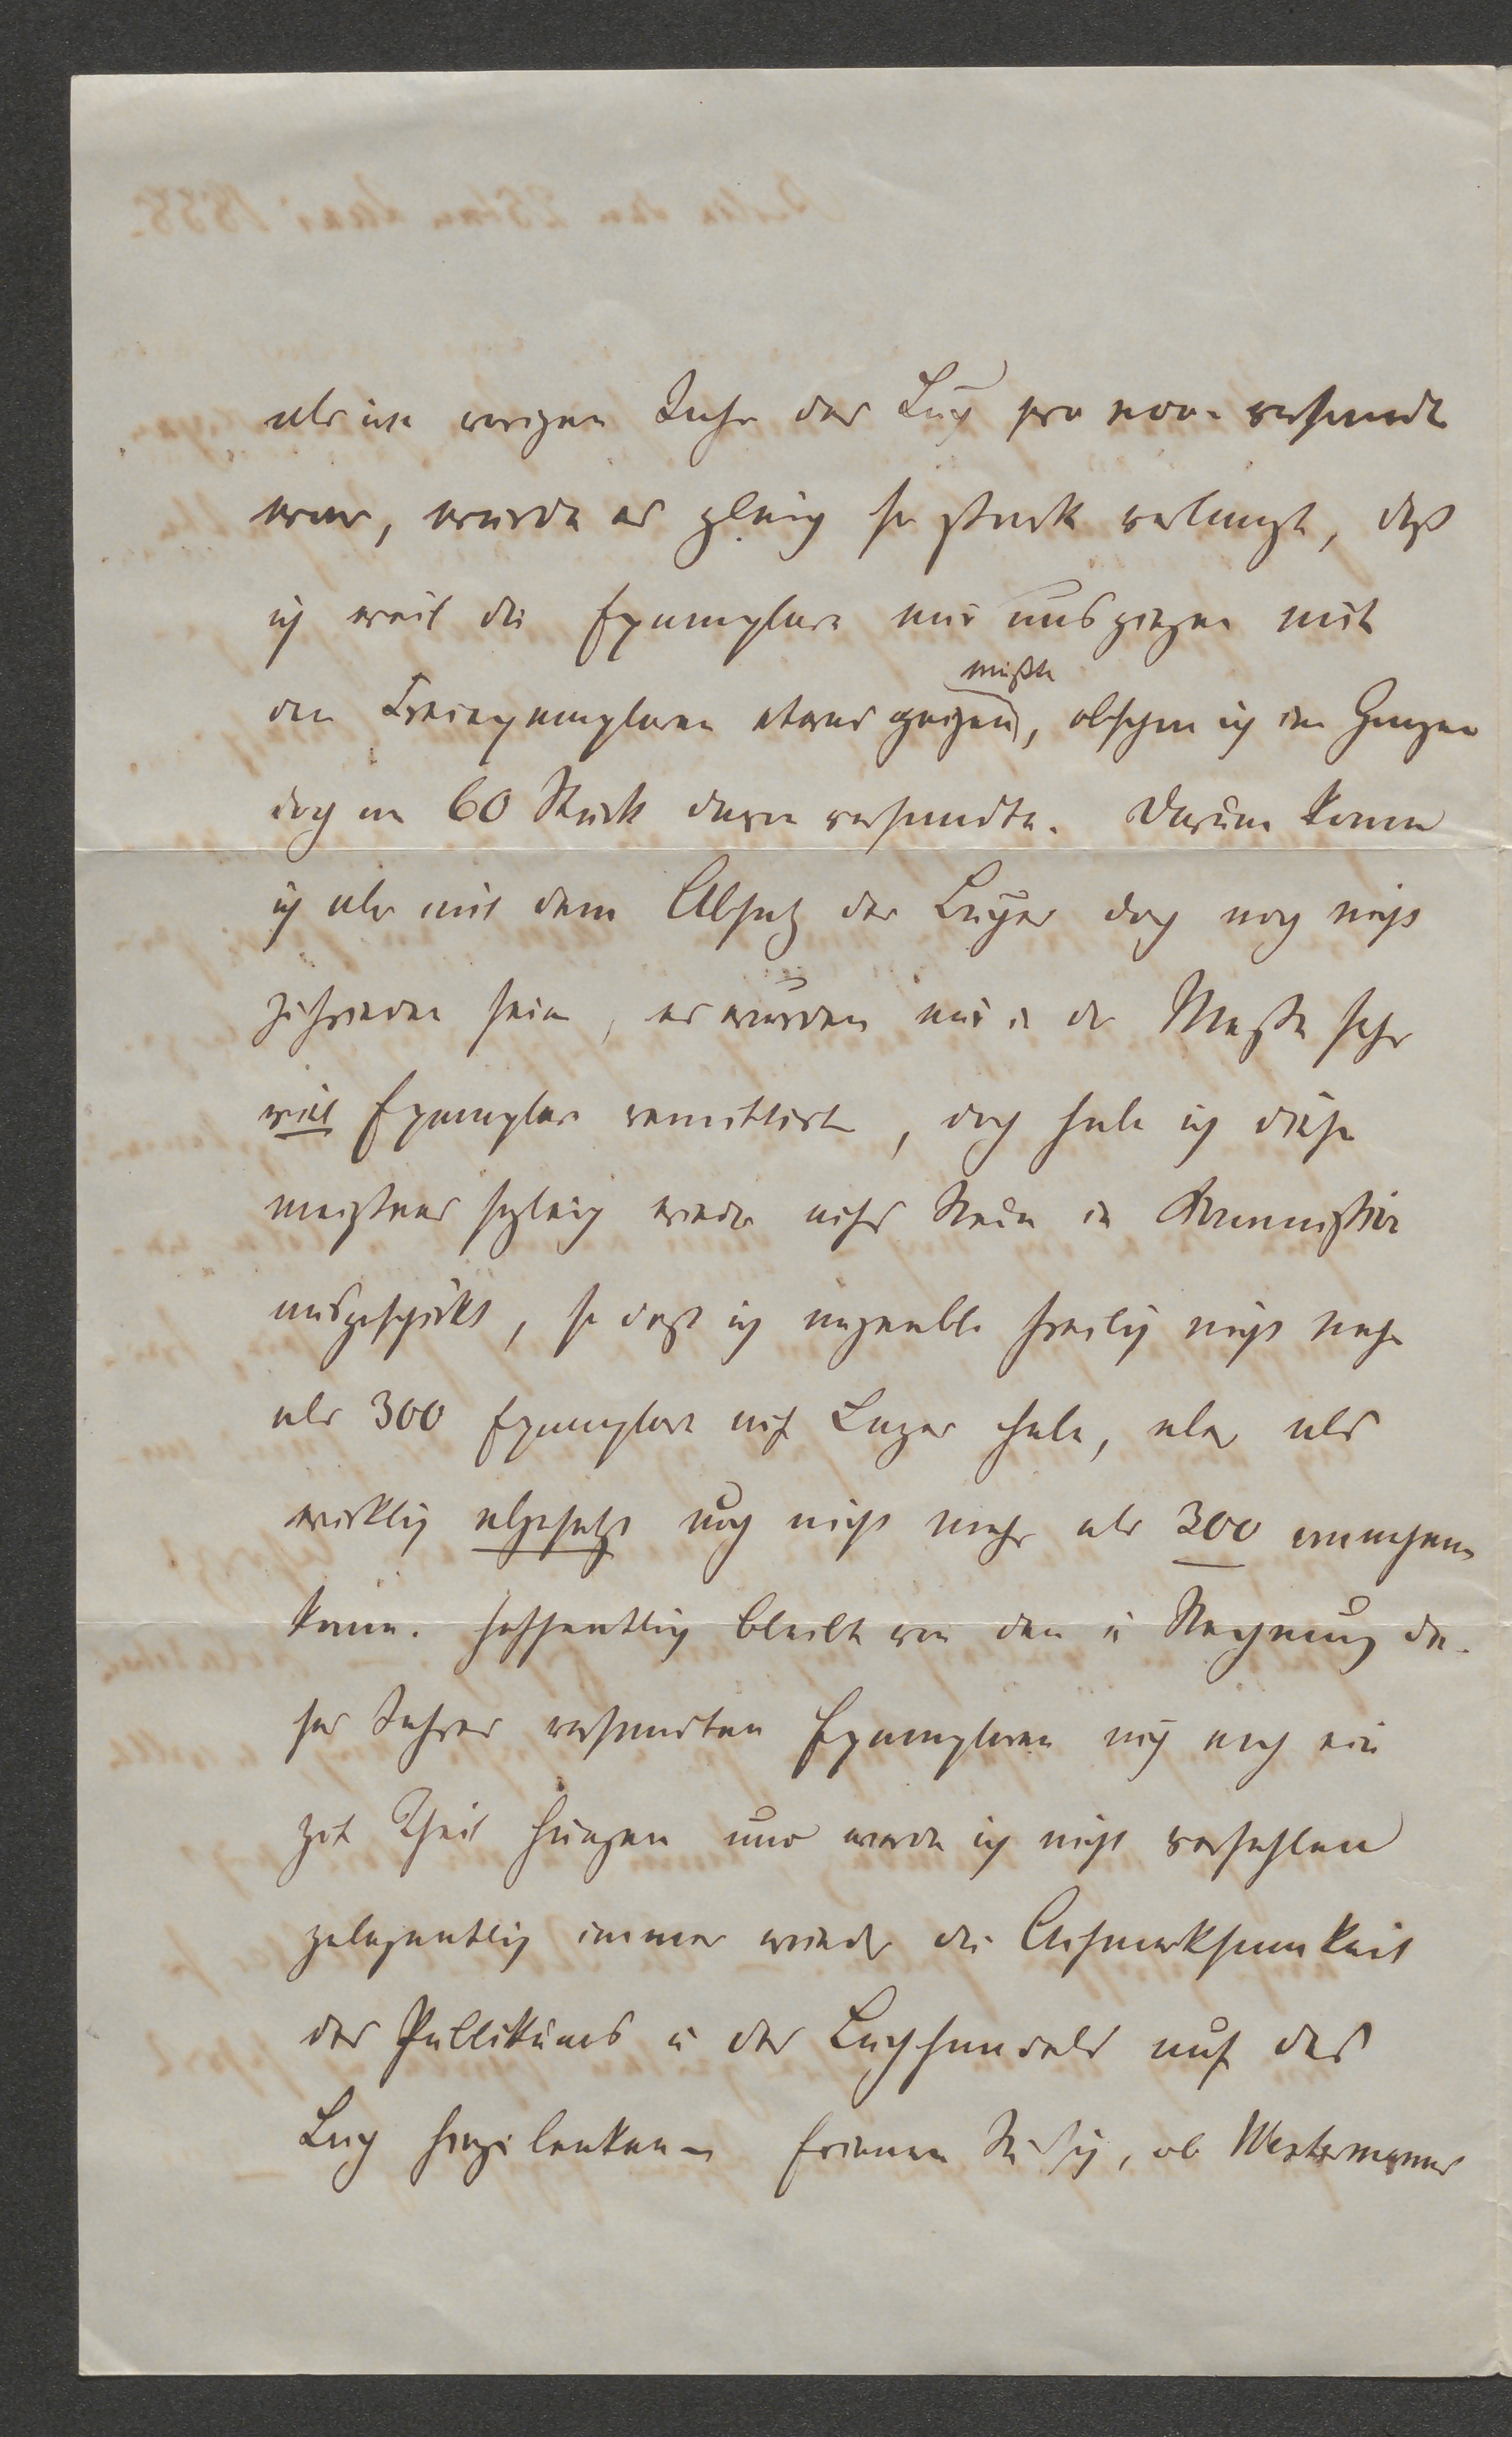 als im vorigen Jahr das Buch pro nov. versandt
war, wurde es gleich so stark verlangt, daß
ich weil die Exemplare mir ausgingen mit
den Freiexemplaren etwas geizen mußte, obschon ich im Ganzen
doch an 60 Stück davon versandte. Darum kann
ich aber mit dem Absatz des Buches doch noch nicht
zufrieden sein, es wurden mir in der Messe sehr
viel Exemplare remittirt, doch habe ich diese
meistens sogleich wieder aufs Neue in Kommission
ausgeschickt, so daß ich augenbl. freilich nicht mehr
als 300 Exemplare auf Lager habe, aber als
wirklich abgesetzt noch nicht mehr als 300 annehmen
kann. Hoffentlich bleibt von den in Rechnung die-
ses Jahres versandten Exemplaren auch noch ein
gut Theil hängen und werde ich nicht verfehlen
gelegentlich immer wieder die Aufmerksamkeit
des Publikums u des Buchhandels auf das
Buch hinzulenken – Erinnern Sie sich, ob Westermanns